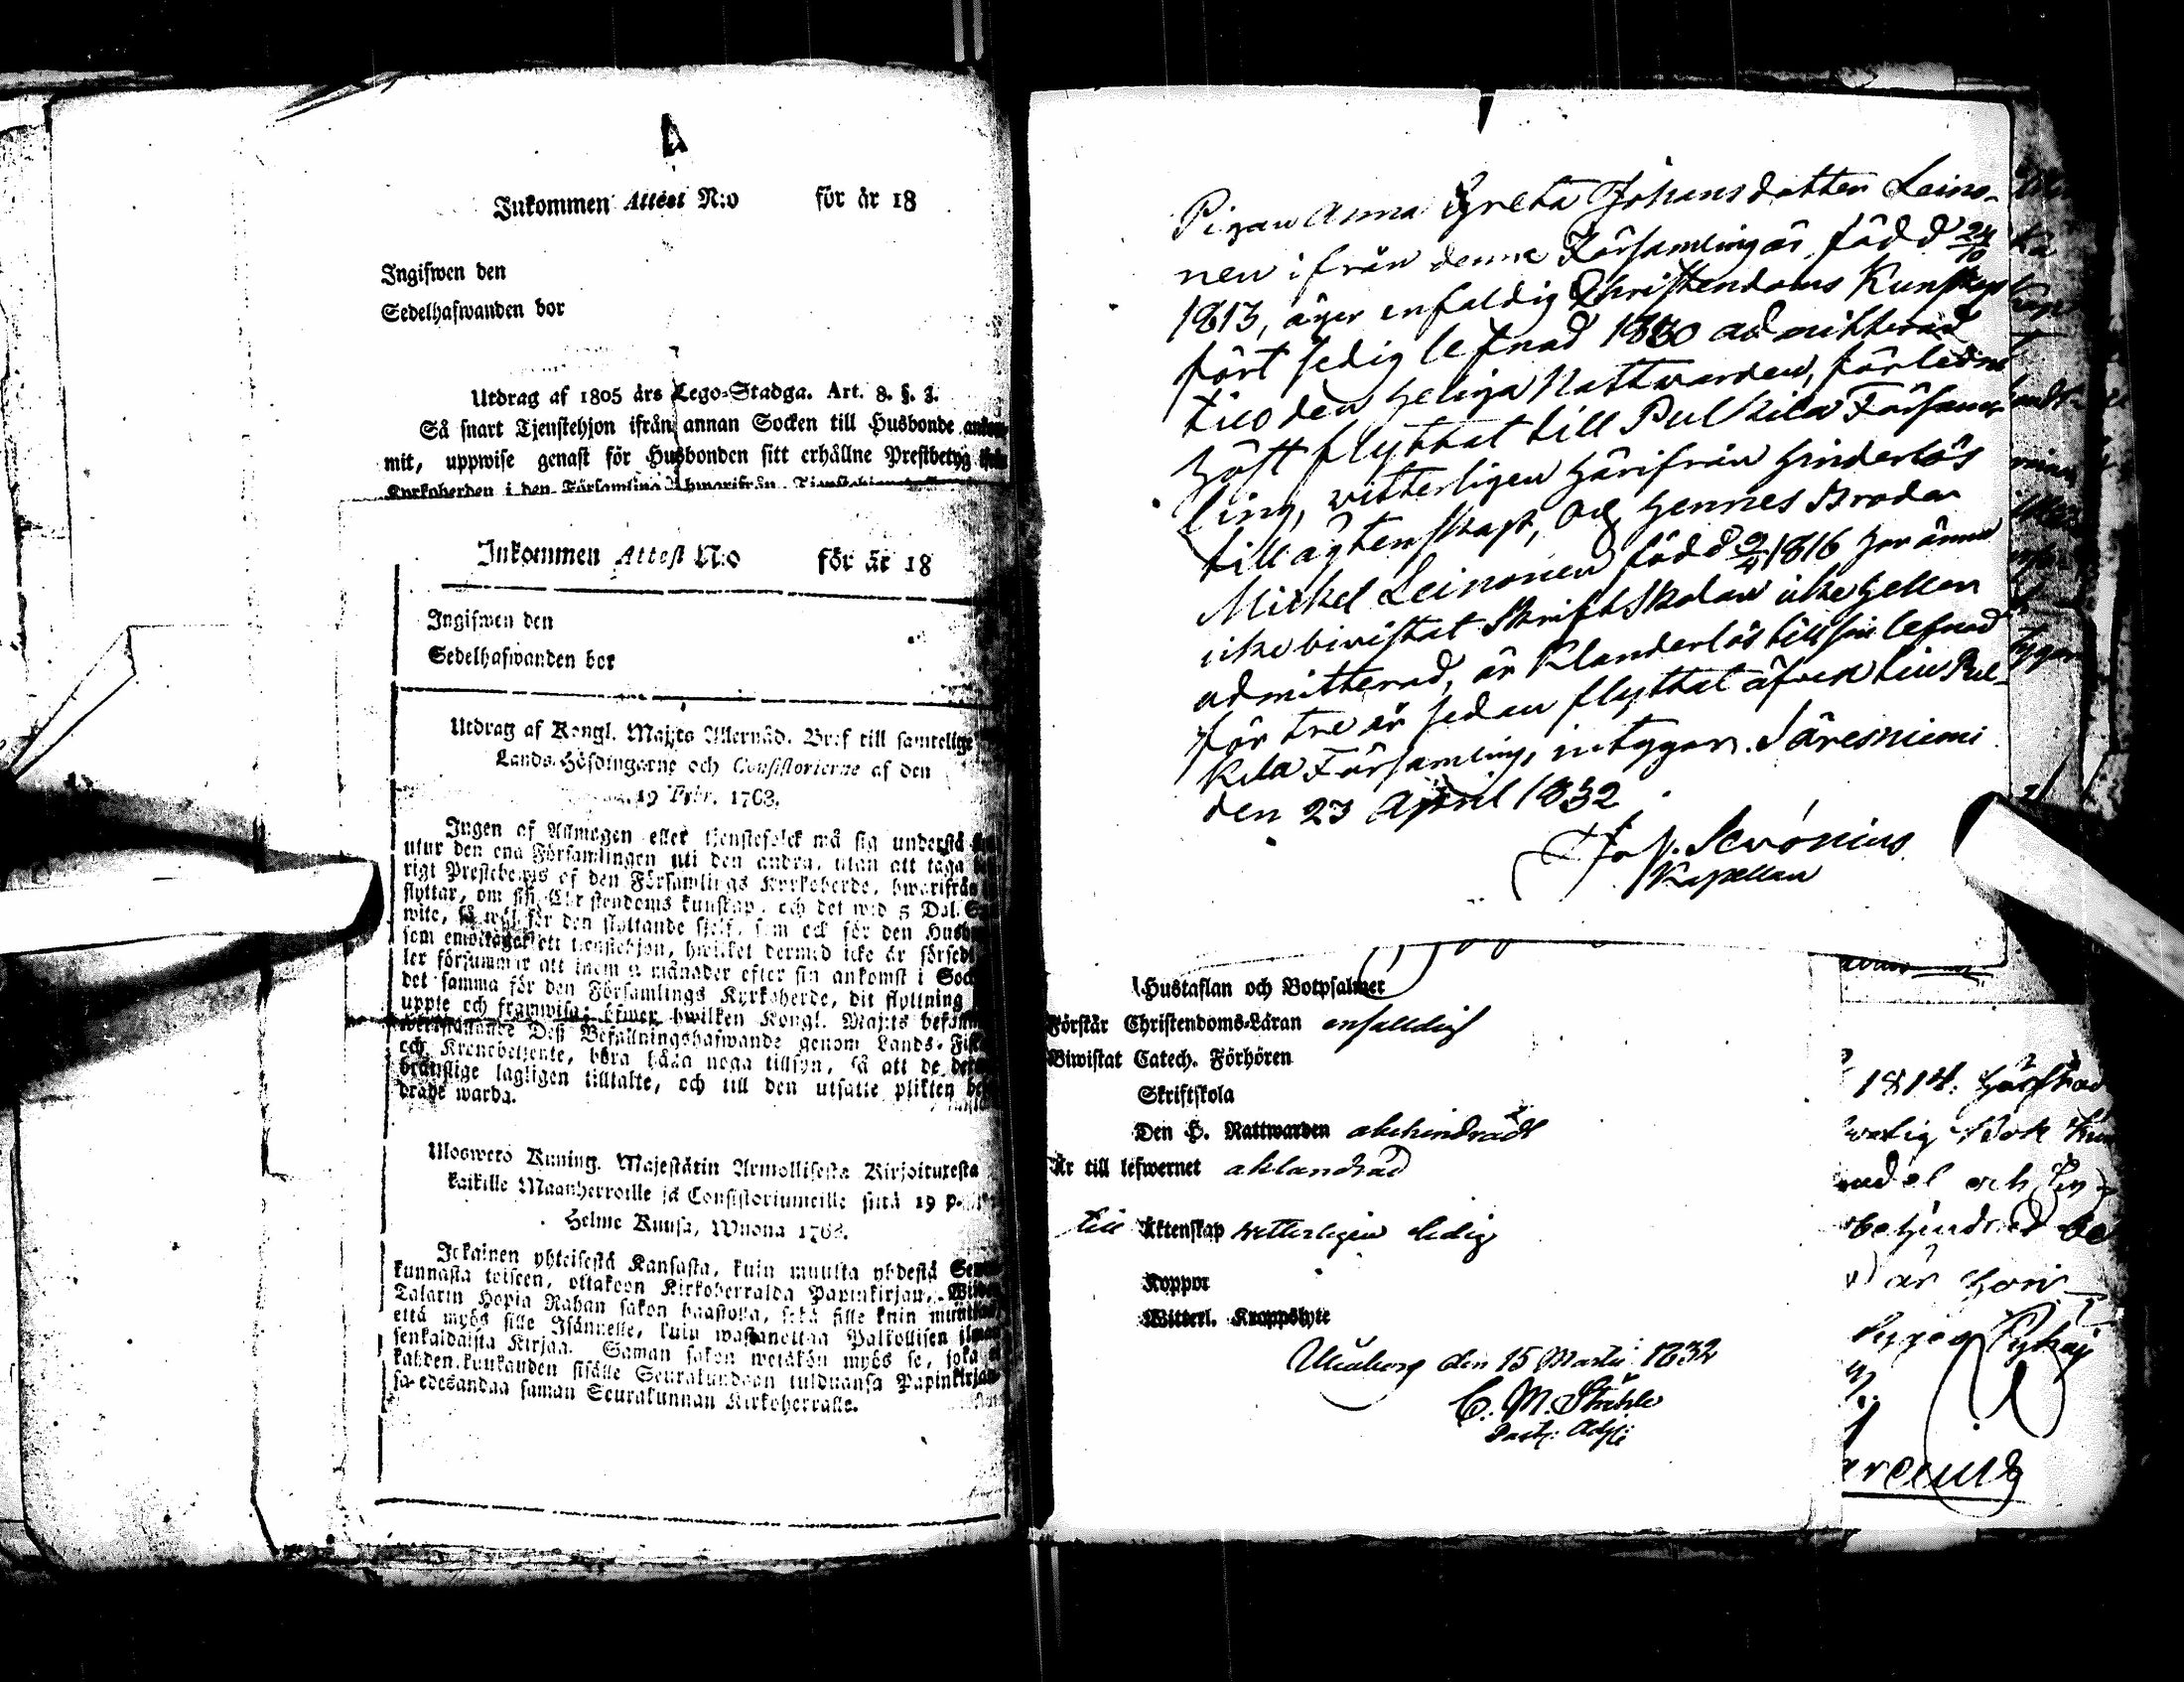 Inkommen Attest N:o för år 18
Ingifwen den
Sedelhafwanden bor
Utdrag af 1805 års Lego-Stadga. Art. 8. §. 3.
Så snart Tjenstehjon ifrån annan Socken till Husbonde
mit, uppwise genast för Husbonden sitt erhållne Prestbetyg
Kyrkoherden i den Församling hwarifrån
Inkommen Attest N:o för är 18
Ingifwen den
Sedelhafwanden bor
Utdrag af Kongl. Maj:ts Allernåd. Bref till samtelige
Lands-Höfdingarne och Consistorierne af den
19 Febr. 1763.
Ingen af Allmogen eller tjenstefolck må sig understå
utur den ena Församlingen uti den andra, utan att taga
rigt Prestebewis af den Församlings Kyrkoherde, hwarifrån
flyttar, om sin Christendoms kunskap, och det wid 5 Dal. S
wite, så wäl för den flyttande sjelf, som ock för den Husb
som emottager ett tjenstehjon, hwilket dermed icke är försedt
ler försummar att inom 2 månader efter sin ankomst i Sock
det samma för den Församlings Kyrkoherde, dit flyttning
uppte och framwisa; öfwer hwilken Kongl. Maj:ts befallning
Deß Befallningshafwande genom Lands-Fisk
och Kronobetjente, böra hålla noga tillsyn, så att de
bräfslige lagligen tilltalte, och till den utsatte plikten
drade warda.
Uloswero Kuning. Majestätin Armollisesta Kirjoituxesta
kaikille Maanherroille ja Consistoriumeille siitä 19 p.
Helme Kuusa, Wuona 1763.
Jokainen yhteisestä Kansasta, kuin muutta yhdestä Seura
kunnasta toiseen, ottakoon Kirkoherralda Papinkirjan, Wiiden
Talarin Hopia Rahan sakon haastolla, sekä sille kuin muutta
että myös sille Isännelle, kuin wastanottaa Palkollisen ilman
senkaldaista Kirjaa. Saman sakon wetäkön myös se, joka ei
kahden kuukauden sisälle Seurakundaan tulduansa Papinkirjan
sa edesandaa saman Seurakunnan Kirkoherralle.
Pigan Anna Greta Johansdotter Leino-
nen ifrån denne Församling är född 24/10
1813, äger enfaldig Christendoms Kunskap
fört sedig lefnad 1830 admitterad
till den heliga Nattvarden, förledne
höst flyttat till Pulkila Församl
ling, vitterligen härifrån hinderlös
till ägtenskap, Og hennes Broder
Mickel Leinonen född 9/4 1816 har ännu
icke bivistat Skriftskolan icke heller
admitterad, är klanderlös till sin lefnad
för tre år sedan flyttat äfven till Pul-
kila Församling, intygar. Säresniemi
den 23 April 1832
Kapellan
Hustaflan och Botpsalmer
Förstår Christendoms-Läran enfalldig
Biwistat Catech. Förhören
Skriftskola
Den H. Nattwarden obehindradt
Är till lefwernet oklandrad
till Äktenskap vetterligen ledig
Koppor
Witterl. Kroppslyte
Uleåborg den 15 Martii 1832
C. M. Ståhle
Past: Adj:
1814.
och
är hon